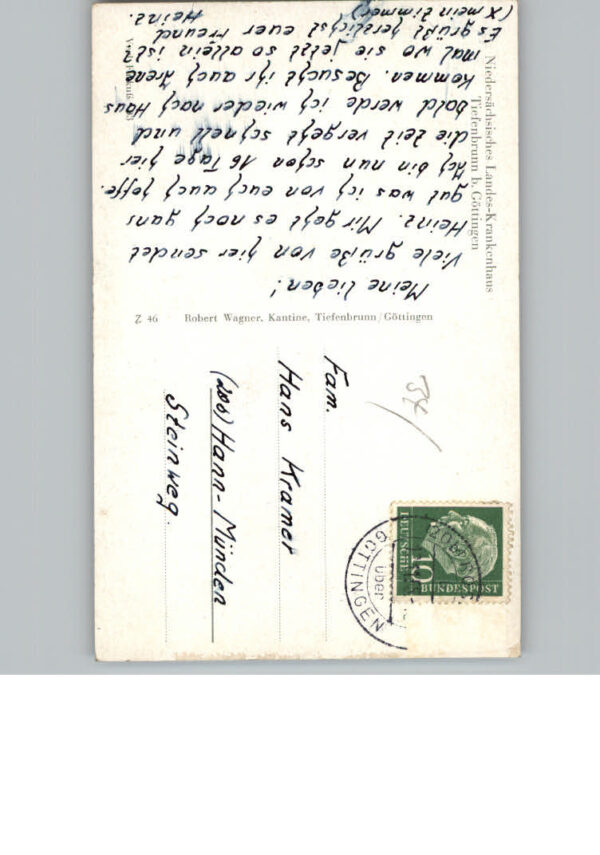 Niedersächsisches Landes-Krankenhaus
Tiefenbrunn b. Göttingen
Meine lieben!
Viele grüße von hier sendet
Heinz. Mir geht es noch ganz
gut was ich von euch auch hoffe.
Ich bin nun schon 16 Tage hier
die Zeit vergeht schnell und
bald werde ich wieder nach Haus
kommen. Besucht ihr auch Irene
mal wo sie jetzt so allein ist?
Es grüßt herzlichst euer Freund
Heinz.
(X mein Zimmer)
Z 46 Robert Wagner, Kantine, Tiefenbrunn/Göttingen
Fam.
Hans Kramer
(20b) Hann-Münden
Steinweg.
DEUTSCHE
10
BUNDESPOST
über
GÖTTINGEN